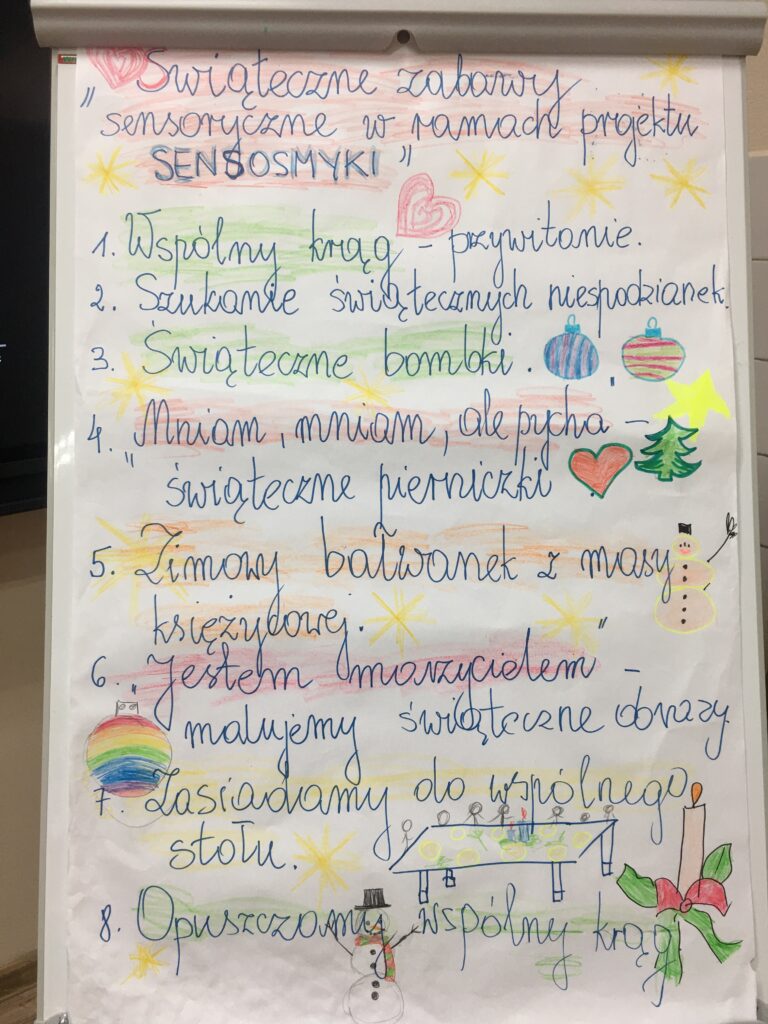 „Świąteczne zabawy
sensoryczne w ramach projektu
SENSOSMYKI”
1. Wspólny krąg – przywitanie.
2. Szukanie świątecznych niespodzianek.
3. Świąteczne bombki.
4. „Mniam, mniam, ale pycha –
świąteczne pierniczki”.
5. Zimowy bałwanek z masy
księżycowej.
6. „Jestem marzycielem” –
malujemy świąteczne obrazy.
7. Zasiadamy do wspólnego
stołu.
8. Opuszczamy wspólny krąg.